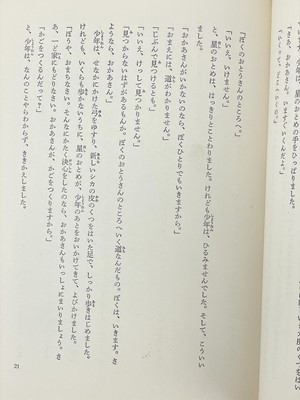 「さあ、おかあさん。いますぐいくんだよ。」
「ぼくのおとうさんのところへ。」
「いいえ、いけません。」
と、星のおとめは、はっきりとことわりました。けれども少年は、ひるみませんでした。そして、こういい
ました。
「おかあさんがいかないのなら、ぼくひとりでもいきますから。」
「おまえには、道がわかりません。」
「じぶんで見つけるとも。」
「いいえ、けっして見つかりません。」
「見つからないはずがあるもんか。ぼくのおとうさんのところへいく道なんだもの。ぼくは、いきます。さ
ようなら、おかあさん。」
少年は、せなかにかけた弓をゆすり、新しいシカの皮のくつをはいた足で、しっかり歩きはじめました。
けれども、いくらも歩かないうちに、星のおとめが、少年のあとをおいかけてきて、よびかけました。
「ぼうや、おまちなさい。そんなにかたく決心をしたのなら、おかあさんもいっしょにまいりましょう。さ
あ、一ど家にもどりなさい。おかあさんが、かごをつくりますから。」
「かごをつくるんだって？」
少年は、なんのことやらわからず、ききかえしました。
21